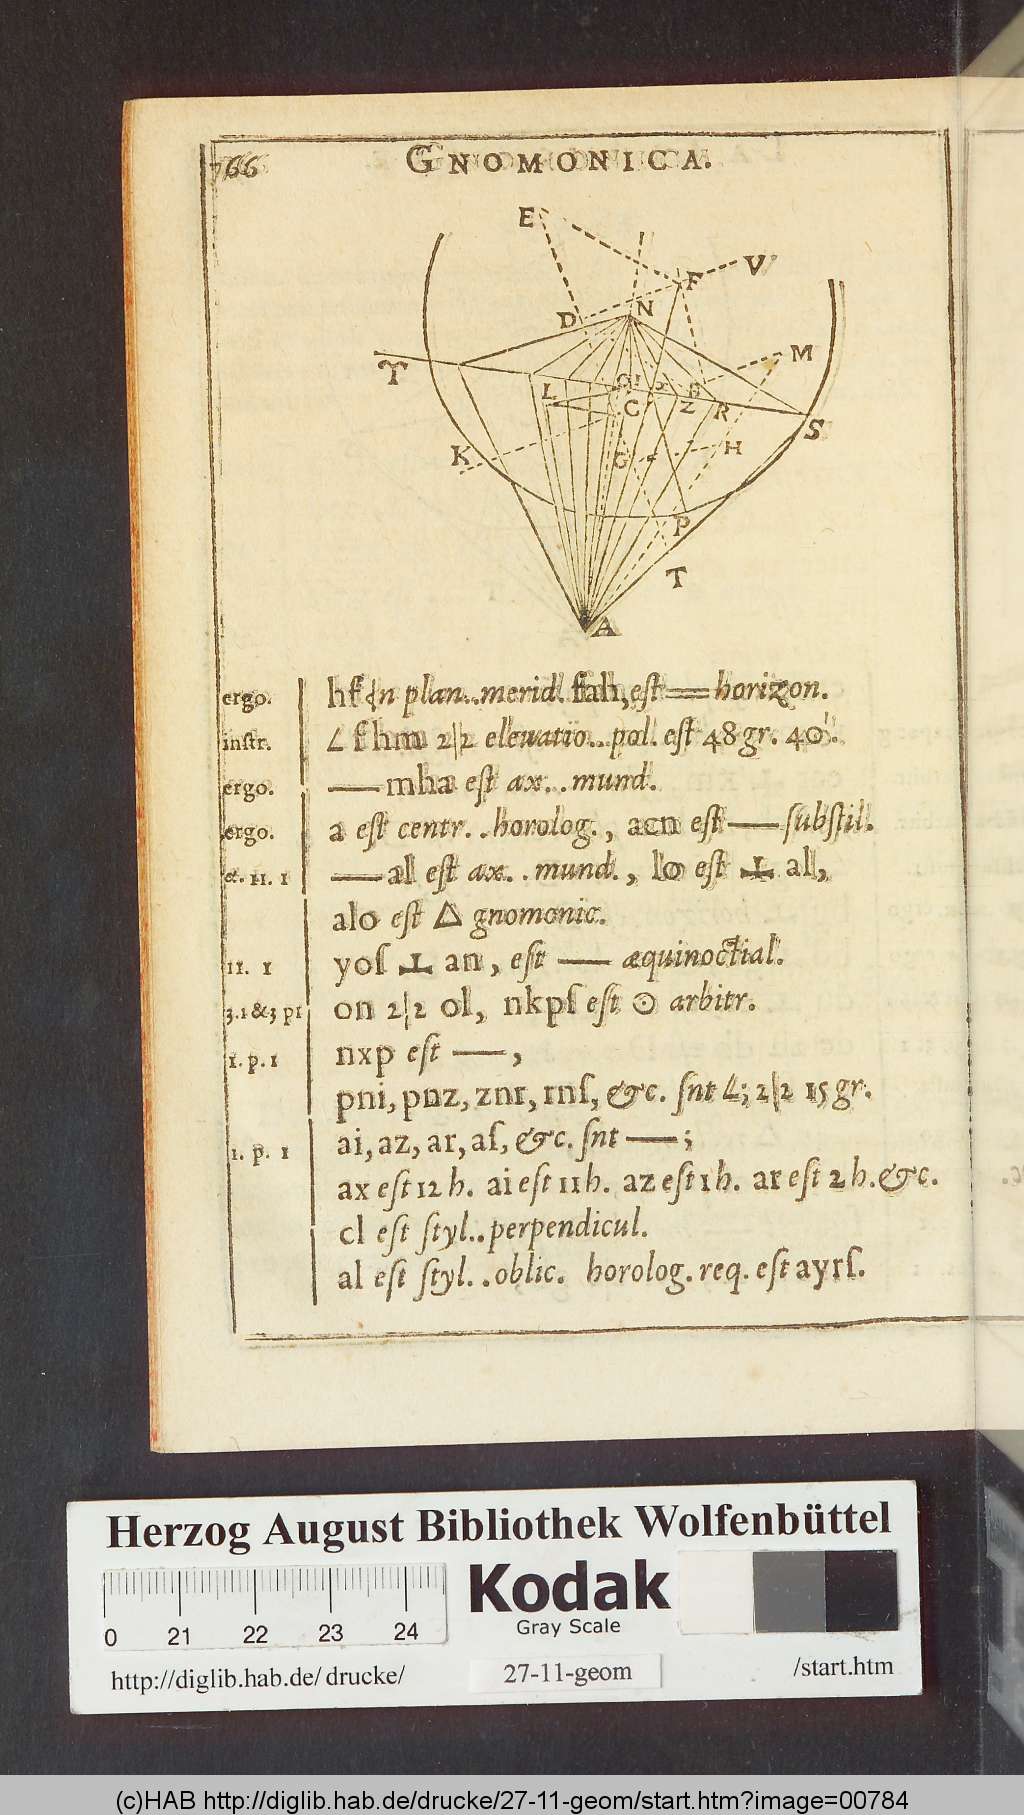 766
GNOMONICA.
E
V
F
N
D
M
T
L
C
Z
R
S
K
G
H
P
T
A
ergo. hf in plan..merid. fah, est — horizon.
instr. ∠ fhm 2|2 elevatio..pol. est 48 gr. 40'.
ergo. — mha est ax..mund.
ergo. a est centr..horolog., acn est — substil.
&. 11. 1 — al est ax..mund., lo est ⊥ al,
alo est △ gnomonic.
11. 1 yos ⊥ an, est — æquinoctial.
3.1&3 p1 on 2|2 ol, nkps est ⊙ arbitr.
1. p. 1 nxp est —,
pni, pnz, znr, rns, &c. snt ∠; 2|2 15 gr.
1. p. 1 ai, az, ar, as, &c. snt —;
ax est 12 h. ai est 11 h. az est 1 h. ar est 2 h. &c.
cl est styl..perpendicul.
al est styl..oblic. horolog. req. est ayrs.
Herzog August Bibliothek Wolfenbüttel
0 21 22 23 24
Kodak
Gray Scale
http://diglib.hab.de/drucke/ 27-11-geom /start.htm
(c)HAB http://diglib.hab.de/drucke/27-11-geom/start.htm?image=00784